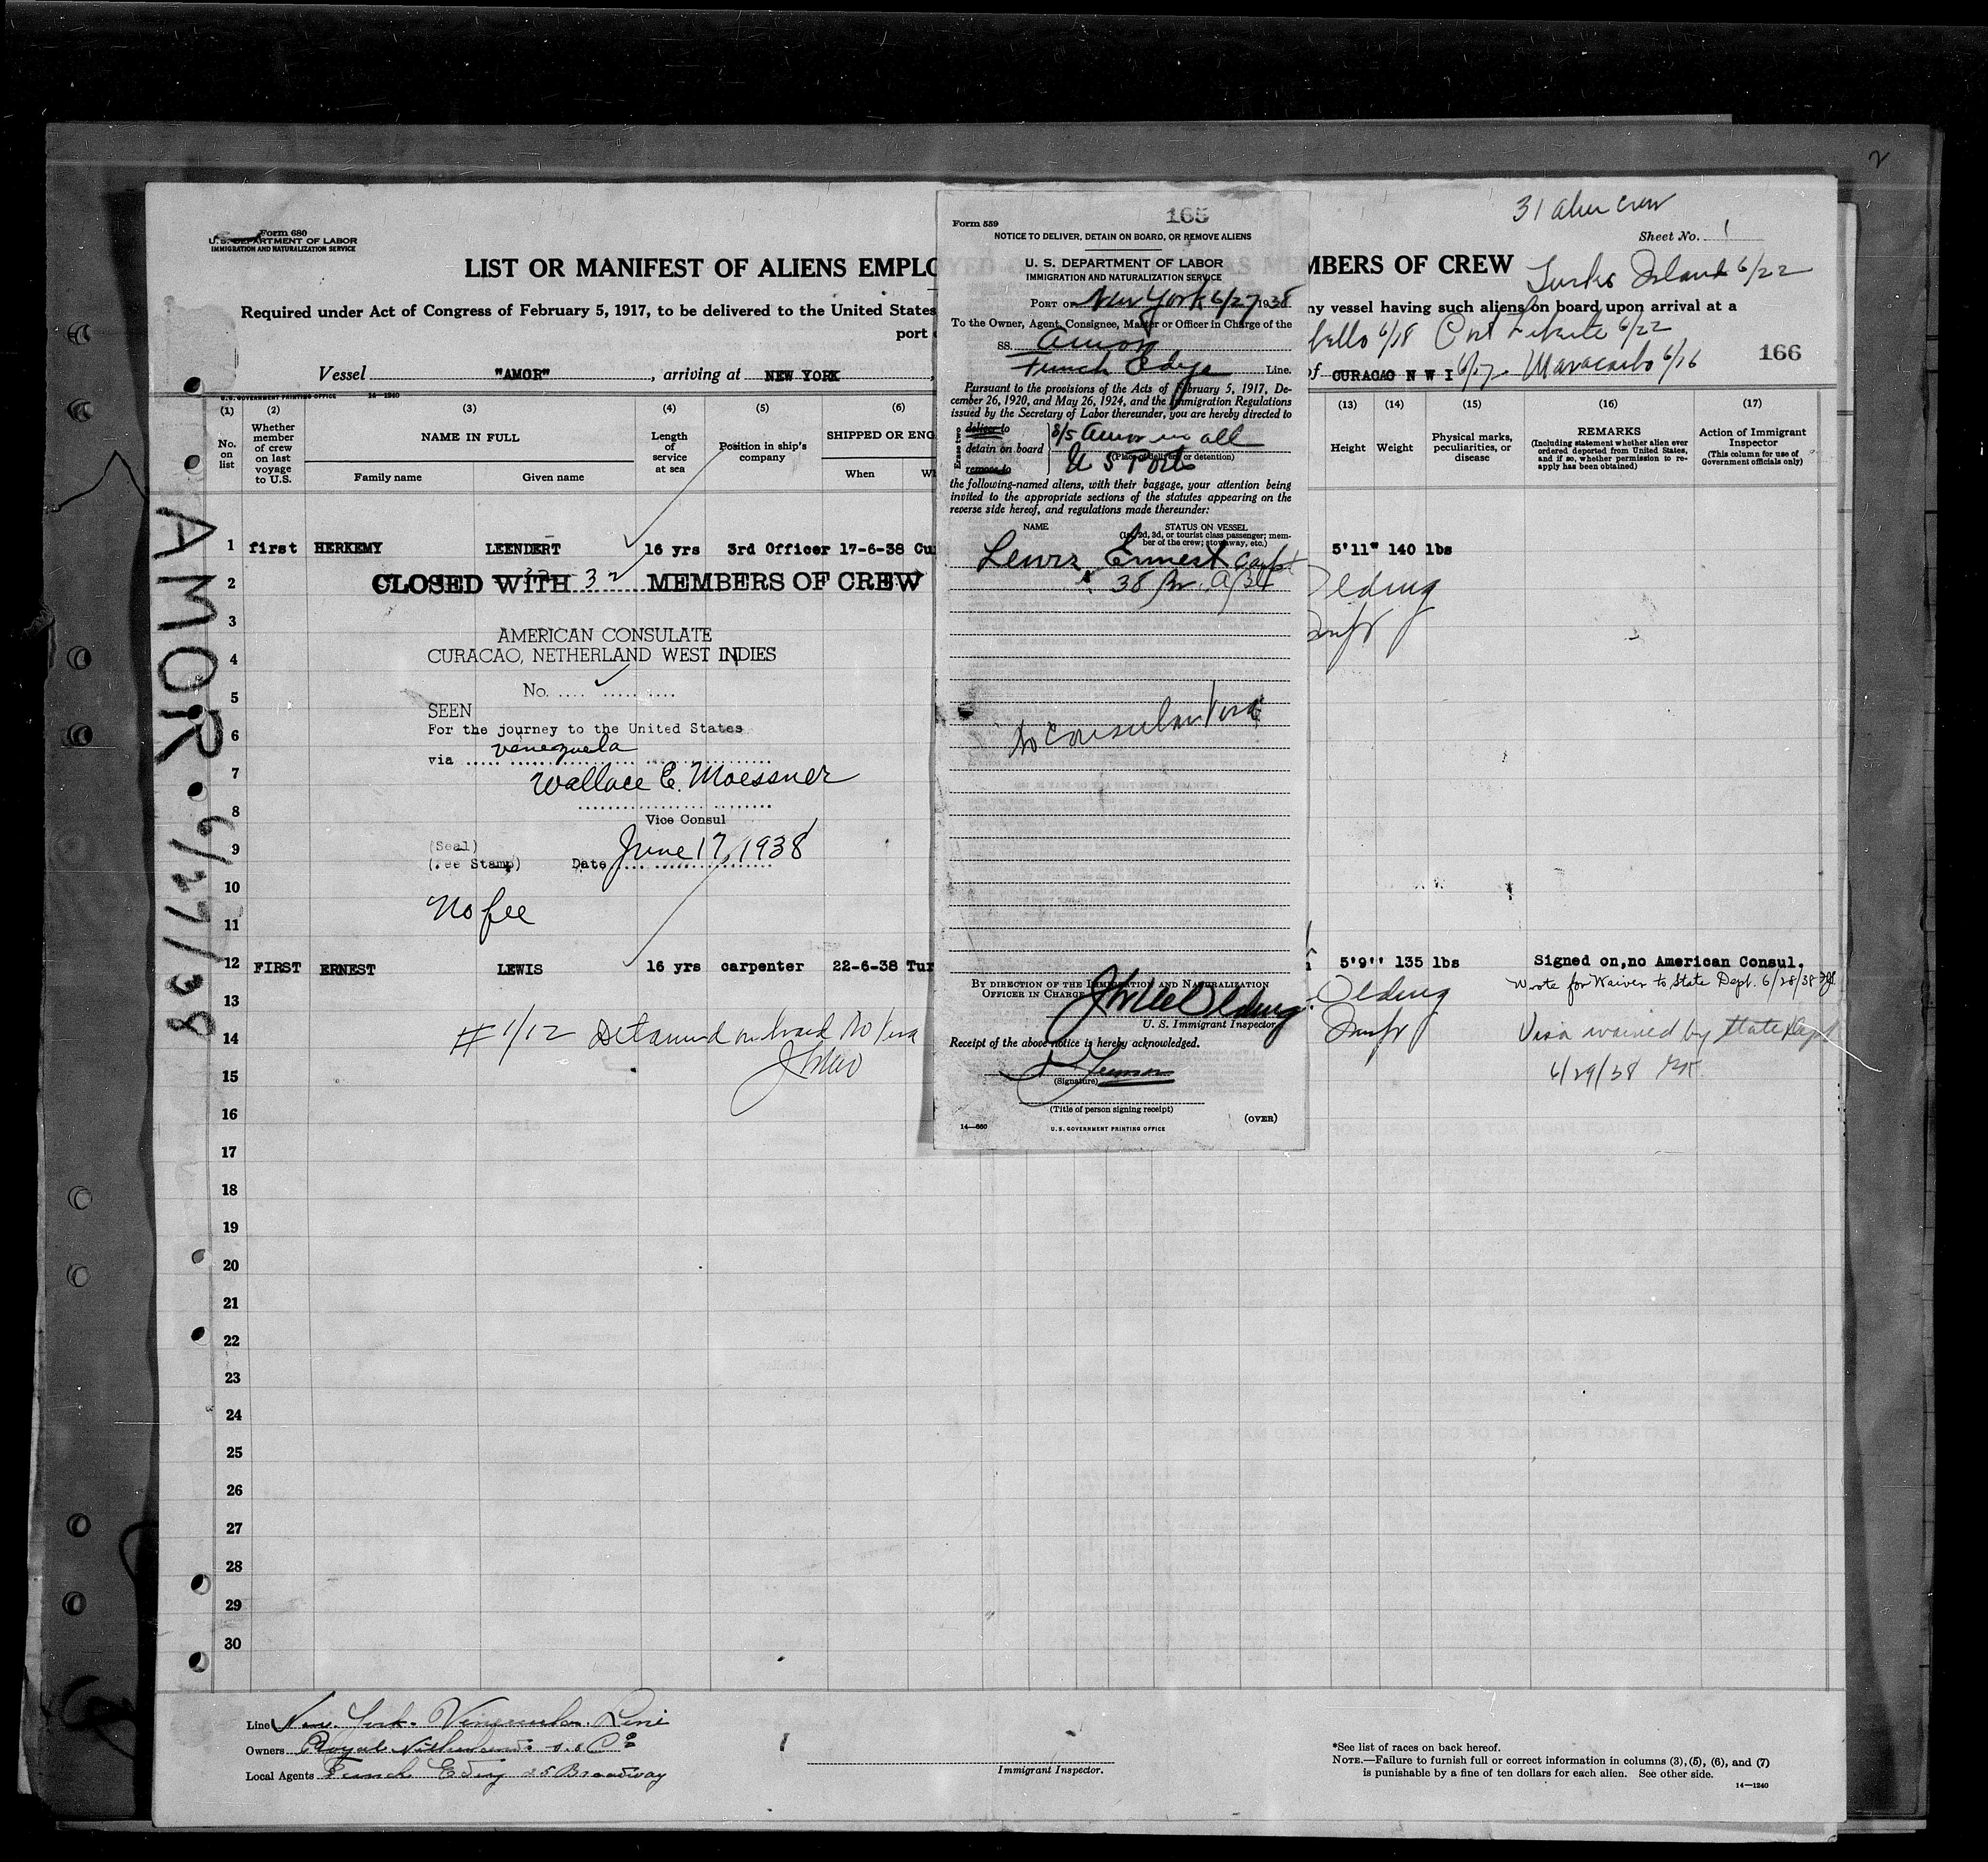 2
31 alien crew
Form 680
U.S. DEPARTMENT OF LABOR
IMMIGRATION AND NATURALIZATION SERVICE
Sheet No. 1
LIST OR MANIFEST OF ALIENS EMPLO
MBERS OF CREW
Turks Island 6/22
Required under Act of Congress of February 5, 1917, to be delivered to the United States
ny vessel having such aliens on board upon arrival at a
port
bello 6/18 Port 6/22
166
Vessel "AMOR", arriving at NEW YORK,
of CURACAO N W I 6/17 Maracaibo 6/16
U.S. GOVERNMENT PRINTING OFFICE 14—1240
(1) (2) (3) (4) (5) (6)
No. on list
Whether member of crew on last voyage to U.S.
NAME IN FULL
Family name
Given name
Length of service at sea
Position in ship's company
SHIPPED OR ENG
When
W
(13) (14) (15) (16) (17)
Height
Weight
Physical marks, peculiarities, or disease
REMARKS
(Including statement whether alien ever ordered deported from United States, and if so, whether permission to reapply has been obtained)
Action of Immigrant Inspector
(This column for use of Government officials only)
1 first HERKEMY LEENDERT 16 yrs 3rd Officer 17-6-38 Cu
5'11" 140 lbs
2
CLOSED WITH 32 MEMBERS OF CREW
Olding
3
AMERICAN CONSULATE
4
CURACAO, NETHERLAND WEST INDIES
No.
5
SEEN
6
For the journey to the United States
via venezuela
7
Wallace E. Moessner
8
Vice Consul
9
(Seal)
(Fee Stamp) Date June 17, 1938
10
No fee
11
12 FIRST ERNEST LEWIS 16 yrs carpenter 22-6-38 Tur
5'9'' 135 lbs
Signed on,no American Consul.
Wrote for Waiver to State Dept. 6/28/38
13
Olding
14
# 1/12 Detained on board No Visa
Visa waived by State Dept
15
6/29/38
16
17
18
19
20
21
22
23
24
25
26
27
28
29
30
AMOR • 6/27/38
165
Form 559
NOTICE TO DELIVER, DETAIN ON BOARD, OR REMOVE ALIENS
U. S. DEPARTMENT OF LABOR
IMMIGRATION AND NATURALIZATION SERVICE
PORT OF New York 6/27 1938
To the Owner, Agent, Consignee, Master or Officer in Charge of the
SS. Amor
Funch Edye Line.
Pursuant to the provisions of the Acts of February 5, 1917, De-
cember 26, 1920, and May 26, 1924, and the Immigration Regulations
issued by the Secretary of Labor thereunder, you are hereby directed to
Erase two
deliver to
detain on board
remove to
S/S Amor in all
(Place of delivery or detention)
U S Ports
the following-named aliens, with their baggage, your attention being
invited to the appropriate sections of the statutes appearing on the
reverse side hereof, and regulations made thereunder:
NAME
STATUS ON VESSEL
(1st, 2d, 3d, or tourist class passenger; mem-
ber of the crew; stowaway, etc.)
Lewis Ernest Carpt
38 Br.
No Consular Visa
BY DIRECTION OF THE IMMIGRATION AND NATURALIZATION
OFFICER IN CHARGE
Olding
U. S. Immigrant Inspector.
Receipt of the above notice is hereby acknowledged.
(Signature)
(Title of person signing receipt)
(OVER)
14—660
U. S. GOVERNMENT PRINTING OFFICE
Line New York - Venezuelan Line
Owners Royal Netherlands S.S. Co
Local Agents Funch Edye 25 Broadway
Immigrant Inspector.
*See list of races on back hereof.
NOTE.—Failure to furnish full or correct information in columns (3), (5), (6), and (7)
is punishable by a fine of ten dollars for each alien. See other side.
14—1240